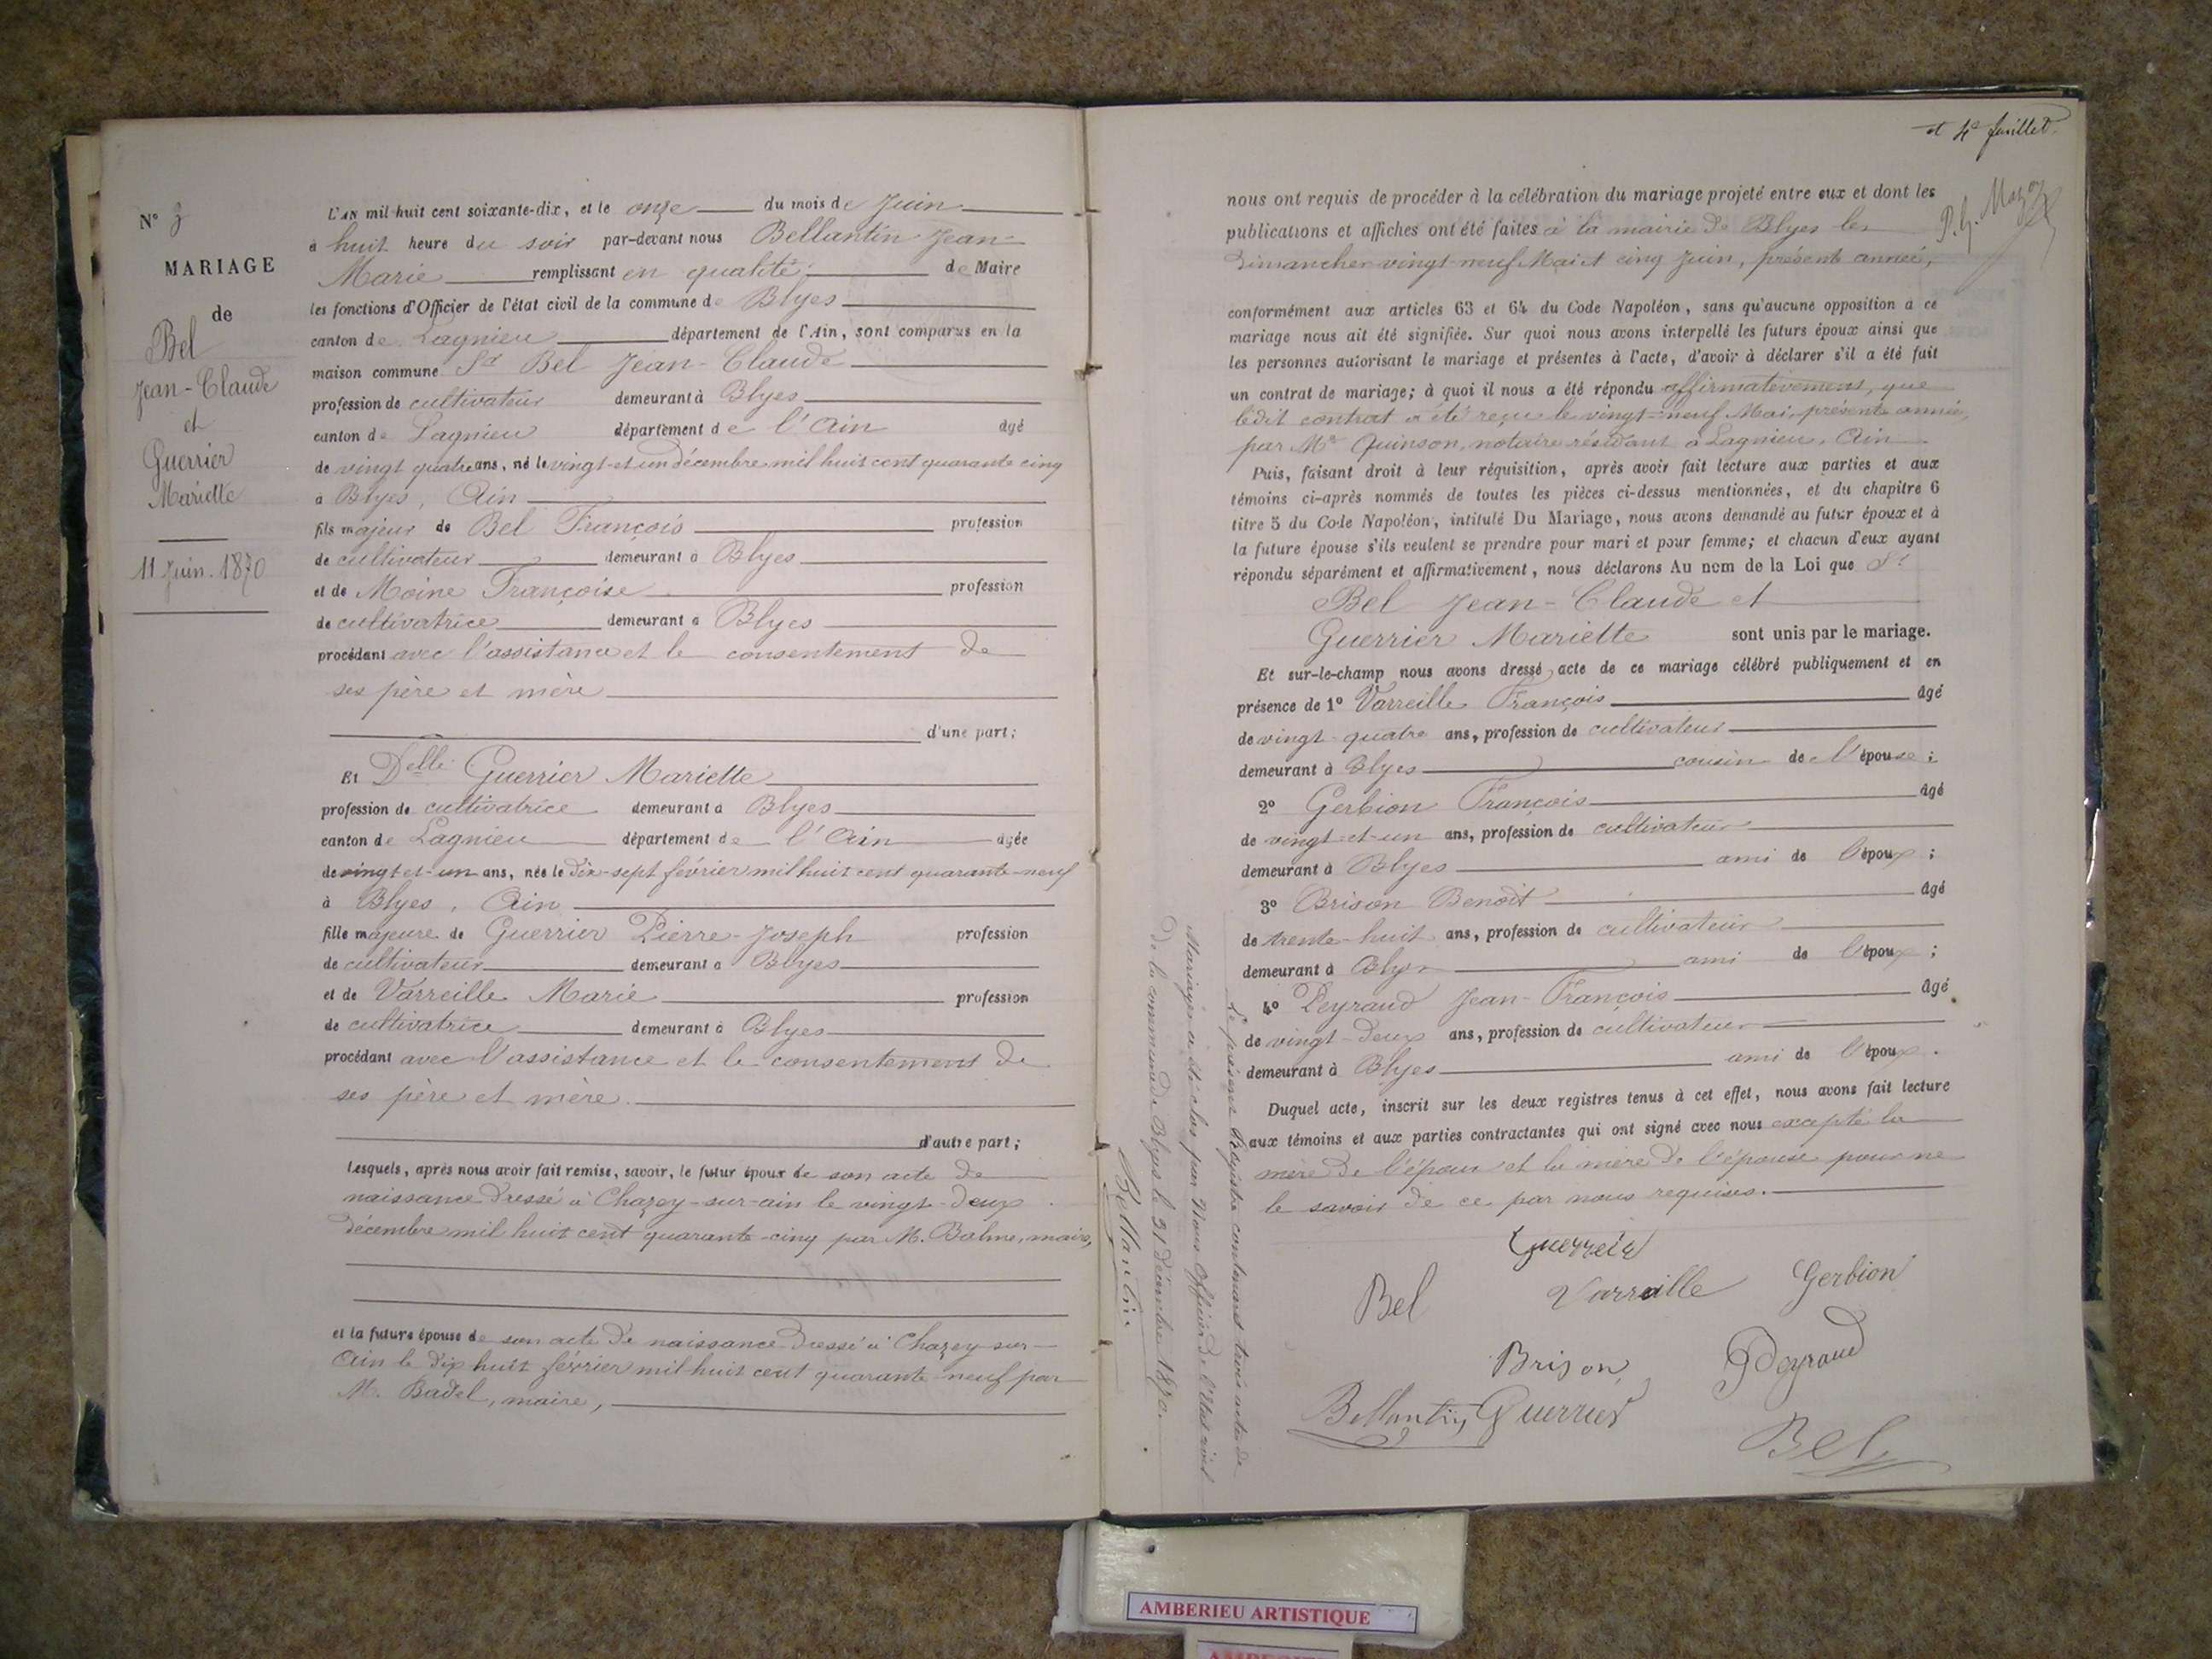 N° 3
MARIAGE
de
Bel
Jean-Claude
et
Guerrier
Mariette
11 Juin 1870
L'AN mil huit cent soixante-dix, et le onze du mois de Juin
à huit heure du soir par-devant nous Bellantin Jean-
Marie remplissant en qualité de Maire
les fonctions d'Officier de l'état civil de la commune de Blyes
canton de Lagnieu département de l'Ain, sont comparus en la
maison commune Sr Bel Jean-Claude
profession de cultivateur demeurant à Blyes
canton de Lagnieu département de l'Ain âgé
de vingt quatre ans, né le vingt-et-un décembre mil huit cent quarante cinq
à Blyes, Ain
fils majeur de Bel François profession
de cultivateur demeurant à Blyes
et de Moine Françoise profession
de cultivatrice demeurant à Blyes
procédant avec l'assistance et le consentement de
ses père et mère
d'une part;
Et Delle Guerrier Mariette
profession de cultivatrice demeurant à Blyes
canton de Lagnieu département de l'Ain âgée
de vingt-et-un ans, née le dix-sept février mil huit cent quarante-neuf
à Blyes, Ain
fille majeure de Guerrier Pierre-Joseph profession
de cultivateur demeurant à Blyes
et de Varreille Marie profession
de cultivatrice demeurant à Blyes
procédant avec l'assistance et le consentement de
ses père et mère.
d'autre part;
Lesquels, après nous avoir fait remise, savoir, le futur époux de son acte de
naissance dressé à Chazey-sur-ain le vingt-deux
décembre mil huit cent quarante-cinq par M. Balme, maire,
et la future épouse de son acte de naissance dressé à Chazey-sur-
Ain le dix huit février mil huit cent quarante-neuf par
M. Badel, maire,
et 4e feuillet.
nous ont requis de procéder à la célébration du mariage projeté entre eux et dont les
publications et affiches ont été faites à la mairie de Blyes les
dimanches vingt-neuf Mai et cinq Juin, présente année,
conformément aux articles 63 et 64 du Code Napoléon, sans qu'aucune opposition à ce
mariage nous ait été signifiée. Sur quoi nous avons interpellé les futurs époux ainsi que
les personnes autorisant le mariage et présentes à l'acte, d'avoir à déclarer s'il a été fait
un contrat de mariage; à quoi il nous a été répondu affirmativement, que
ledit contrat a été reçu le vingt-neuf Mai, présente année,
par Me Quinson, notaire résidant à Lagnieu, Ain
Puis, faisant droit à leur réquisition, après avoir fait lecture aux parties et aux
témoins ci-après nommés de toutes les pièces ci-dessus mentionnées, et du chapitre 6
titre 5 du Code Napoléon, intitulé Du Mariage, nous avons demandé au futur époux et à
la future épouse s'ils veulent se prendre pour mari et pour femme; et chacun d'eux ayant
répondu séparément et affirmativement, nous déclarons Au nom de la Loi que Sr
Bel Jean-Claude et
Guerrier Mariette sont unis par le mariage.
Et sur-le-champ nous avons dressé acte de ce mariage célébré publiquement et en
présence de 1° Varreille François âgé
de vingt-quatre ans, profession de cultivateur
demeurant à Blyes cousin de l'épouse;
2° Gerbion François âgé
de vingt-et-un ans, profession de cultivateur
demeurant à Blyes ami de l'époux;
3° Brison Benoît âgé
de trente-huit ans, profession de cultivateur
demeurant à Blyes ami de l'époux;
4° Peyraud Jean-François âgé
de vingt-deux ans, profession de cultivateur
demeurant à Blyes ami de l'époux.
Duquel acte, inscrit sur les deux registres tenus à cet effet, nous avons fait lecture
aux témoins et aux parties contractantes qui ont signé avec nous excepté la
mère de l'époux et la mère de l'épouse pour ne
le savoir de ce par nous requises.
Guerrier
Bel Varreille Gerbion
Brison Peyraud
Bellantin Guerrier
Bel
Le présent Registre contenant trois actes de
Mariages a été clos par Nous Officier de l'Etat civil
de la commune de Blyes le 31 Décembre 1870.
Bellantin
AMBERIEU ARTISTIQUE